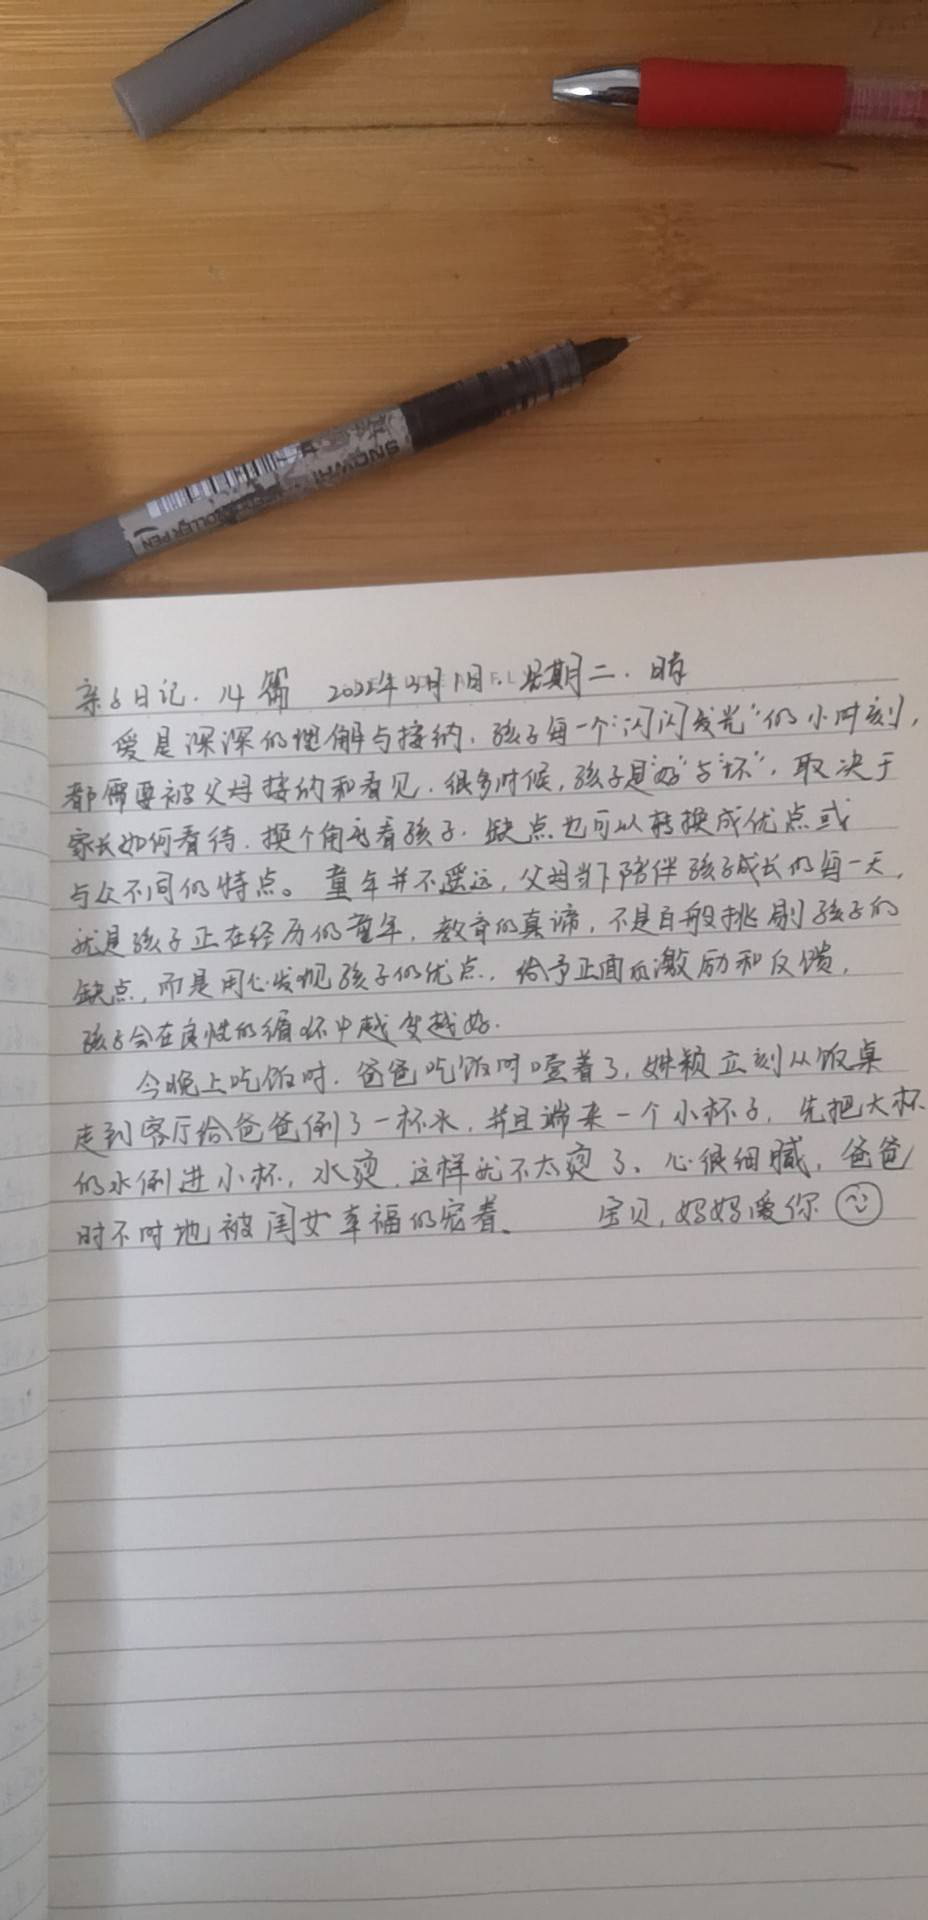 SNOWHI
ROLLER PEN
亲子日记. 14篇 2022年3月1日. 星期二. 晴
爱是深深的理解与接纳. 孩子每一个“闪闪发光”的小时刻,
都需要被父母接纳和看见. 很多时候, 孩子是“好”与“坏”, 取决于
家长如何看待. 换个角度看孩子. 缺点也可以转换成优点或
与众不同的特点。童年并不遥远, 父母当下陪伴孩子成长的每一天,
就是孩子正在经历的童年, 教育的真谛, 不是百般挑剔孩子的
缺点, 而是用心发现孩子的优点, 给予正面的激励和反馈,
孩子会在良性的循环中越变越好.
今晚上吃饭时. 爸爸吃饭时噎着了, 姝颖立刻从饭桌
走到客厅给爸爸倒了一杯水, 并且端来一个小杯子, 先把大杯
的水倒进小杯, 水烫, 这样就不太烫了、心很细腻, 爸爸
时不时地被闺女幸福的宠着、 宝贝, 妈妈爱你